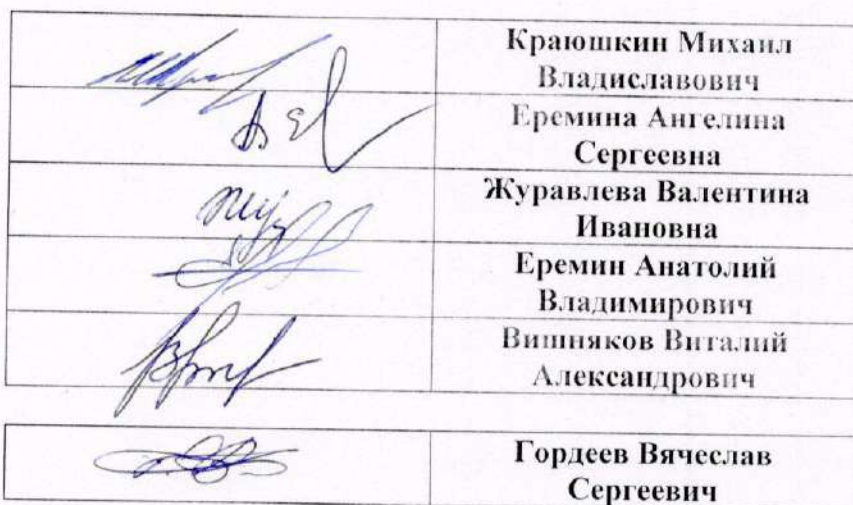 Краюшкин Михаил
Владиславович
Еремина Ангелина
Сергеевна
Журавлева Валентина
Ивановна
Еремин Анатолий
Владимирович
Вишняков Виталий
Александрович
Гордеев Вячеслав
Сергеевич